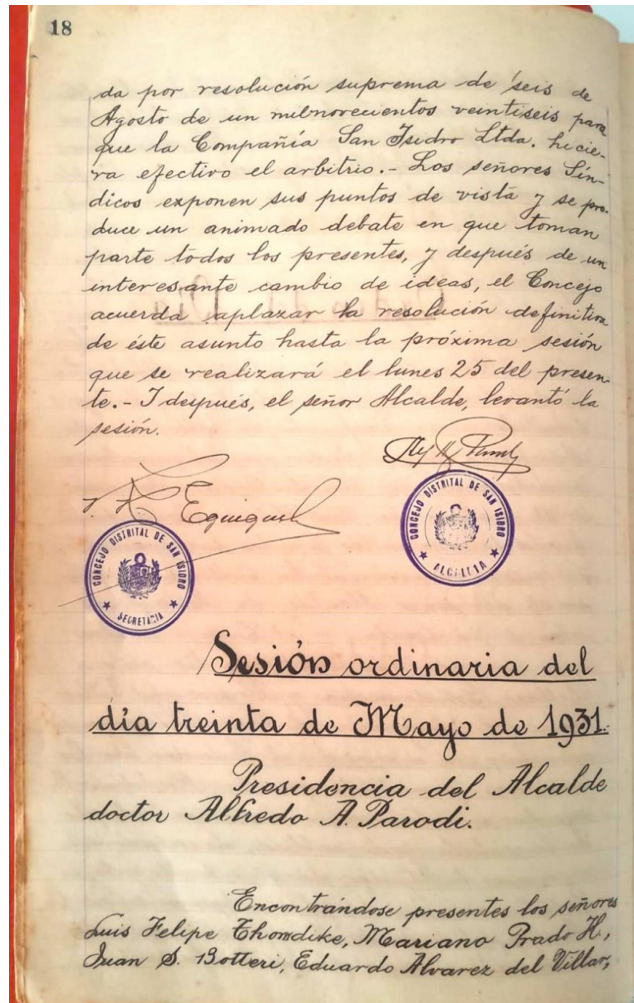 18
da por resolución suprema de seis de
Agosto de un milnovecientos veintiseis para
que la Compañía San Isidro Ltda. hicie-
ra efectivo el arbitrio.- Los señores Sín-
dicos exponen sus puntos de vista y se pro-
duce un animado debate en que toman
parte todos los presentes, y después de un
interesante cambio de ideas, el Concejo
acuerda aplazar la resolución definitiva
de éste asunto hasta la próxima sesión
que se realizará el lunes 25 del presen-
te.- I después, el señor Alcalde, levantó la
sesión.
CONCEJO DISTRITAL DE SAN ISIDRO
ALCALDIA
CONCEJO DISTRITAL DE SAN ISIDRO
SECRETARIA
Sesión ordinaria del
día treinta de Mayo de 1931.
Presidencia del Alcalde
doctor Alfredo A. Parodi.
Encontrándose presentes los señores
Luis Felipe Thorndike, Mariano Prado H,
Juan S. Botteri, Eduardo Alvarez del Villar,